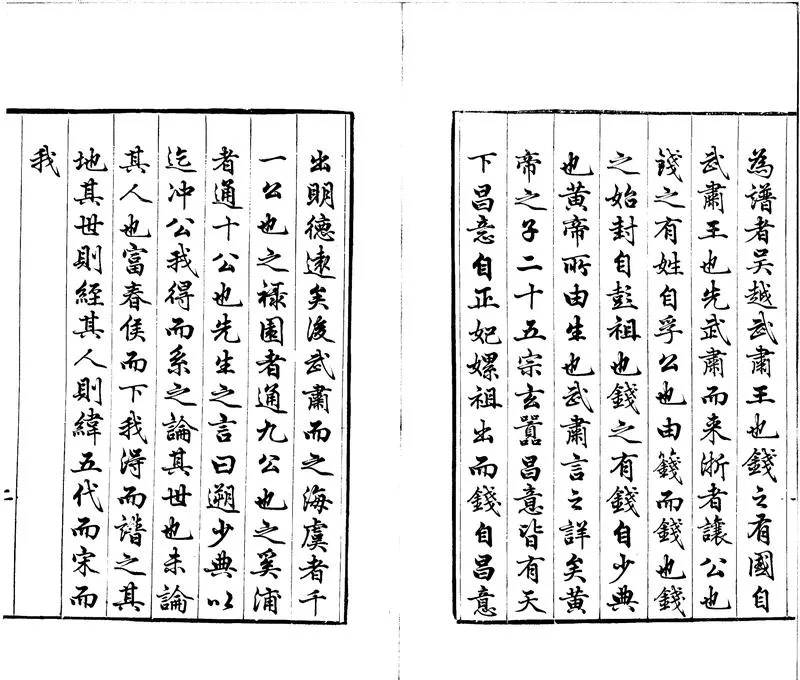 為譜者吴越武肅王也錢之有國自
武肅王也先武肅而来浙者讓公也
錢之有姓自孚公也由籛而錢也錢
之始封自彭祖也錢之有錢自少典
也黄帝所由生也武肅言之詳矣黄
帝之子二十五宗玄囂昌意皆有天
下昌意自正妃嫘祖出而錢自昌意
出明德遠矣後武肅而之海虞者千
一公也之禄園者通九公也之奚浦
者通十公也先生之言曰遡少典以
迄冲公我得而系之論其世也未論
其人也富春侯而下我得而譜之其
地其世則經其人則緯五代而宋而
我
二